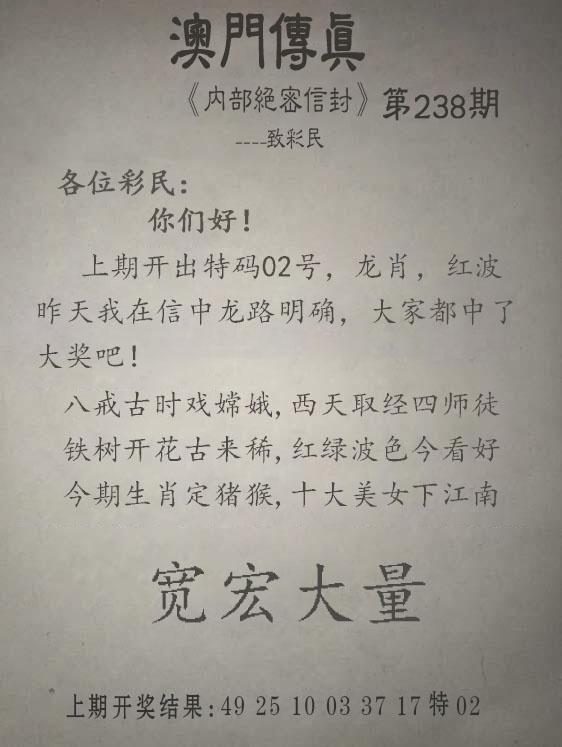 澳門傳眞
《内部絕密信封》第238期
----致彩民
各位彩民：
你们好！
上期开出特码02号，龙肖，红波
昨天我在信中龙路明确，大家都中了
大奖吧！
八戒古时戏嫦娥,西天取经四师徒
铁树开花古来稀,红绿波色今看好
今期生肖定猪猴,十大美女下江南
宽宏大量
上期开奖结果:49 25 10 03 37 17特02